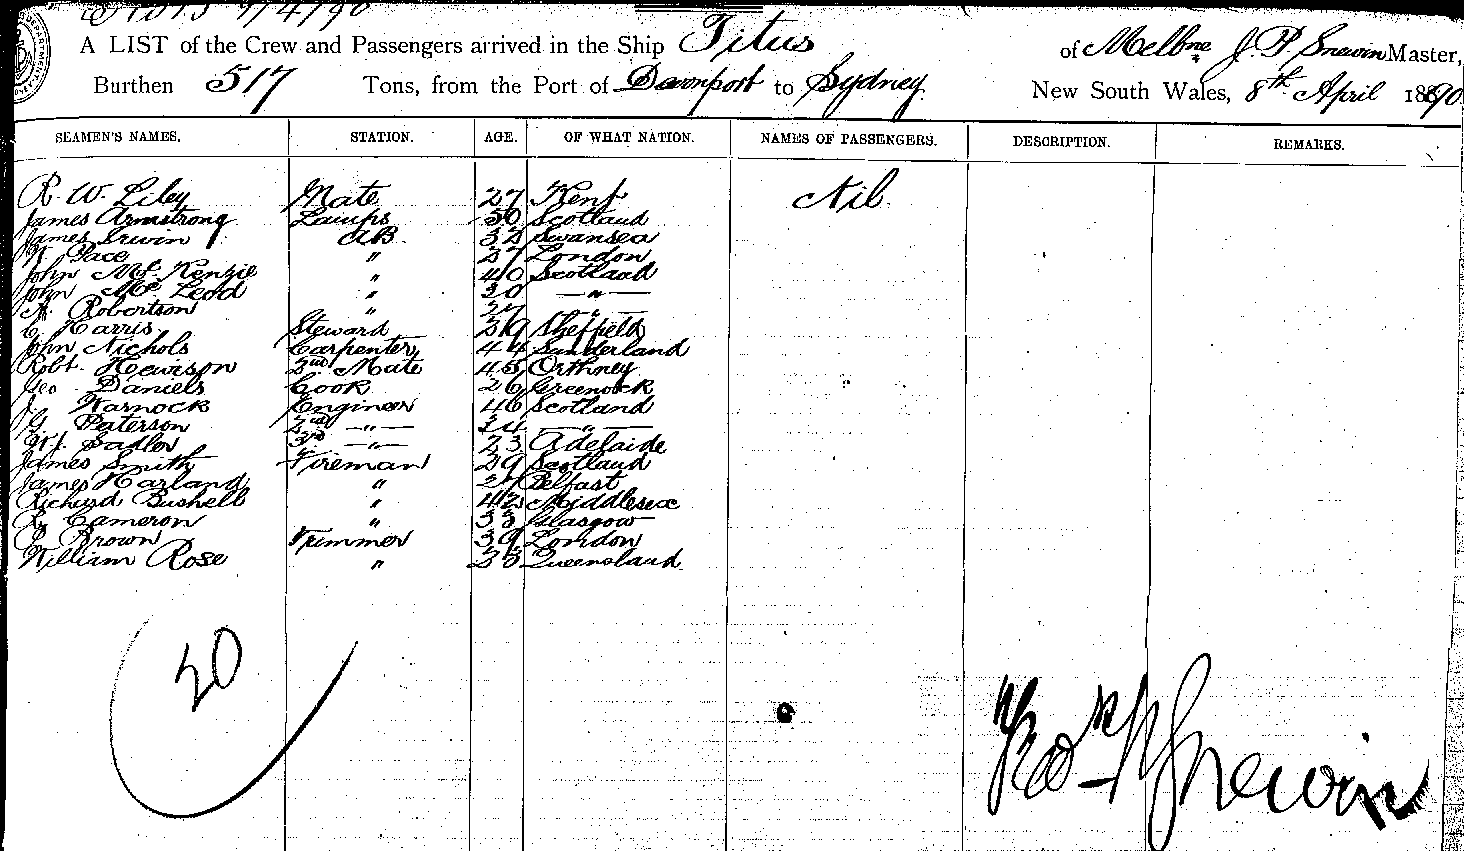 A LIST of the Crew and Passengers arrived in the Ship Titus of Melbne J. P. Snewin Master,
Burthen 517 Tons, from the Port of Davonport to Sydney New South Wales, 8th April 1890
SEAMEN'S NAMES. STATION. AGE. OF WHAT NATION. NAMES OF PASSENGERS. DESCRIPTION. REMARKS.
R. W. Liley Mate 27 Kent Nil
James Armstrong Lamps 50 Scotland
James Irwin AB Swansea
Pace " 27 London
John Mc Kenzie " 40 Scotland
John Mc Leod " 30 — " —
A. Robertson " 27 — " —
C. Harris Steward Sheffield
John Nichols Carpenter 44 Sunderland
Robt. Hewison 2nd Mate 45 Orthney
Geo Daniels Cook 26 Greenock
J. Warnock Engineer 46 Scotland
G. Paterson 2nd — " — 34 — " —
Wf. Sadler 3rd — " — 23 Adelaide
James Smith Fireman 29 Scotland
James Harland " 27 Belfast
Richard Bushell " 42 Middlesex
Cameron " 33 Glasgow
Brown Trimmer 39 London
William Rose " 23 Queensland
20
Snewin